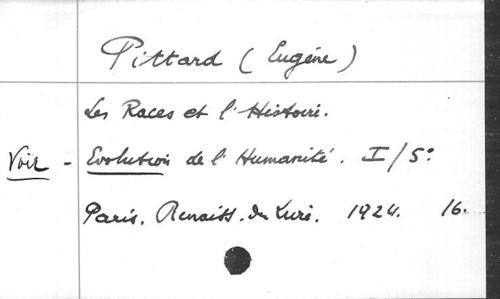 Pittard (Eugène)
Les Races et l'Histoire.
Voir - Evolution de l'Humanité. I/5°
Paris. Renaiss. du Livre. 1924. 16.